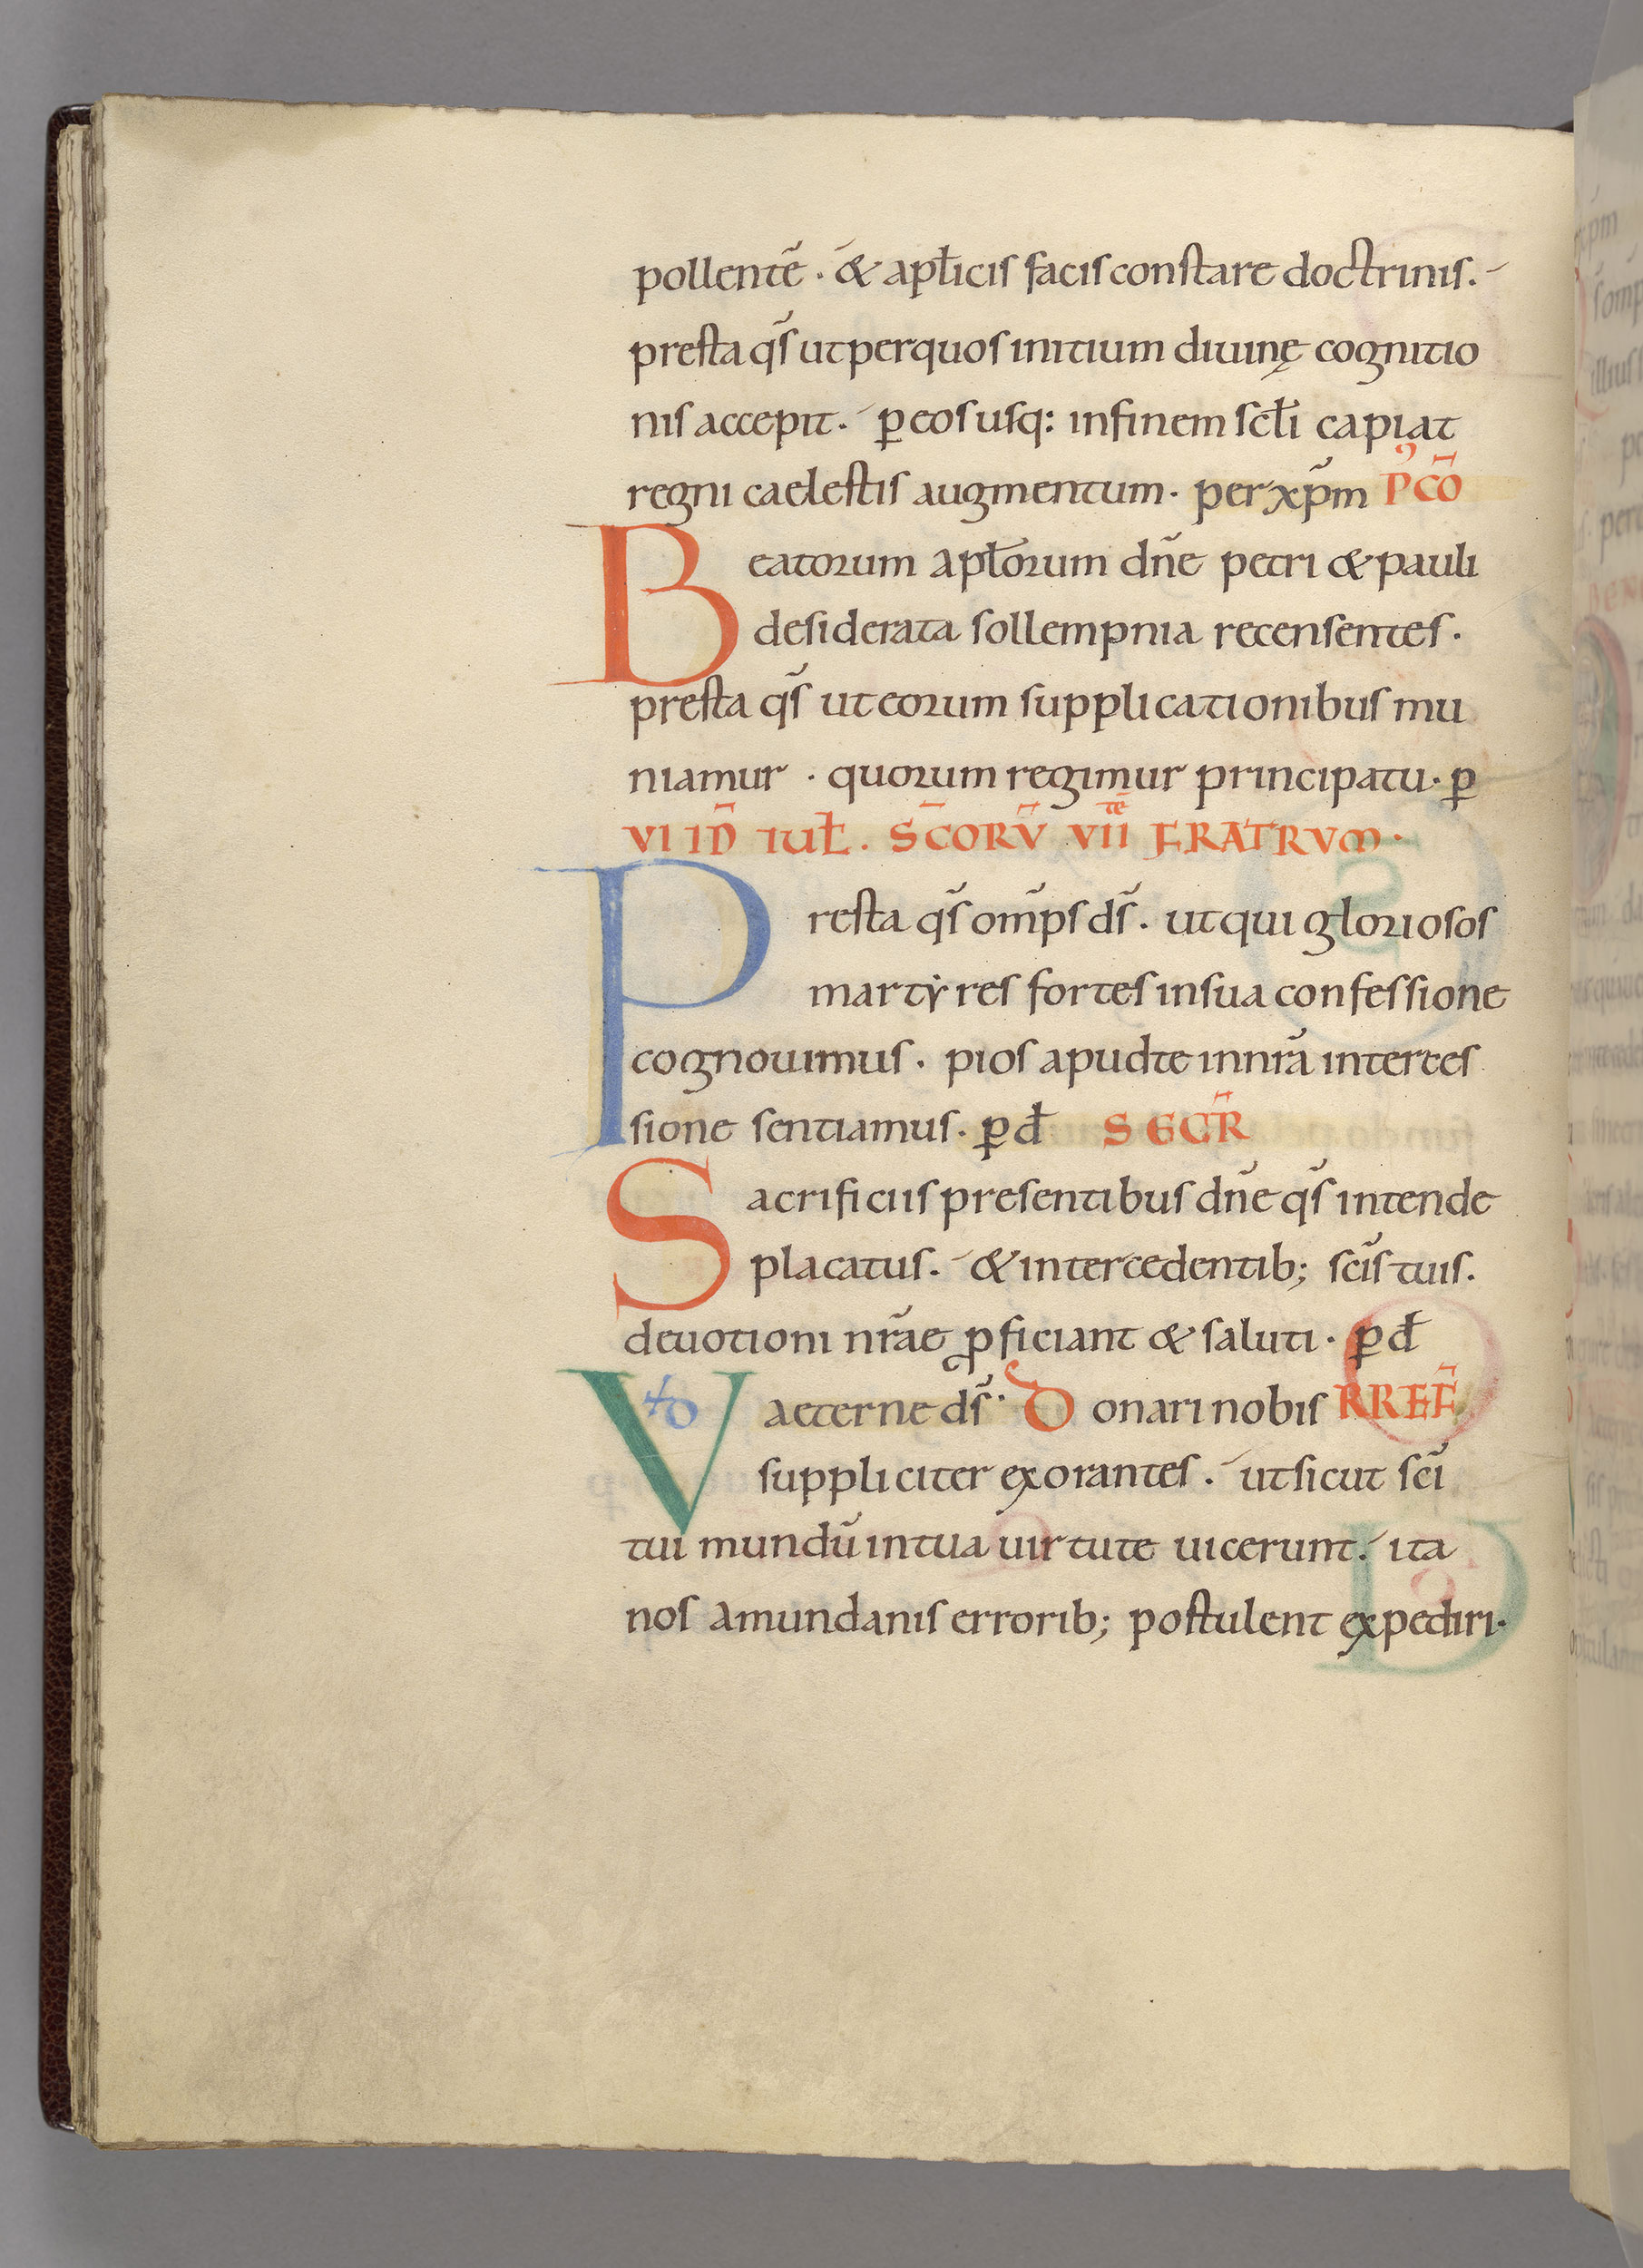 pollentē · & apłicis facis constare doctrinis.
presta qs̄ ut per quos initium diuinę cognitio
nis accepit. p̲ eos usq: in finem scłi capiat
regni caelestis augmentum. per xp̄m PꝰCŌ
Beatorum apłorum dn̄e petri & pauli
desiderata sollempnia recensentes.
presta qs̄ ut eorum supplicationibus mu
niamur · quorum regimur principatu. p̲
VI ID̄ IUŁ. SC̄ORV̄ VII tē FRATRVM.
Presta qs̄ om̄ps ds̄. ut qui gloriosos
martẏres fortes in sua confessione
cognouimus. pios apud te in nr̄a interces
sione sentiamus. p̲ đ SECR̄
Sacrificiis presentibus dn̄e qs̄ intende
placatus. & intercedentib; scīs tuis.
deuotioni nr̄ae ꝓficiant & saluti. p̲ đ
VD aeterne ds̄. Donari nobis RREF̄
suppliciter exorantes. ut sicut scī
tui mundū in tua uirtute uicerunt. ita
nos a mundanis errorib; postulent expediri.